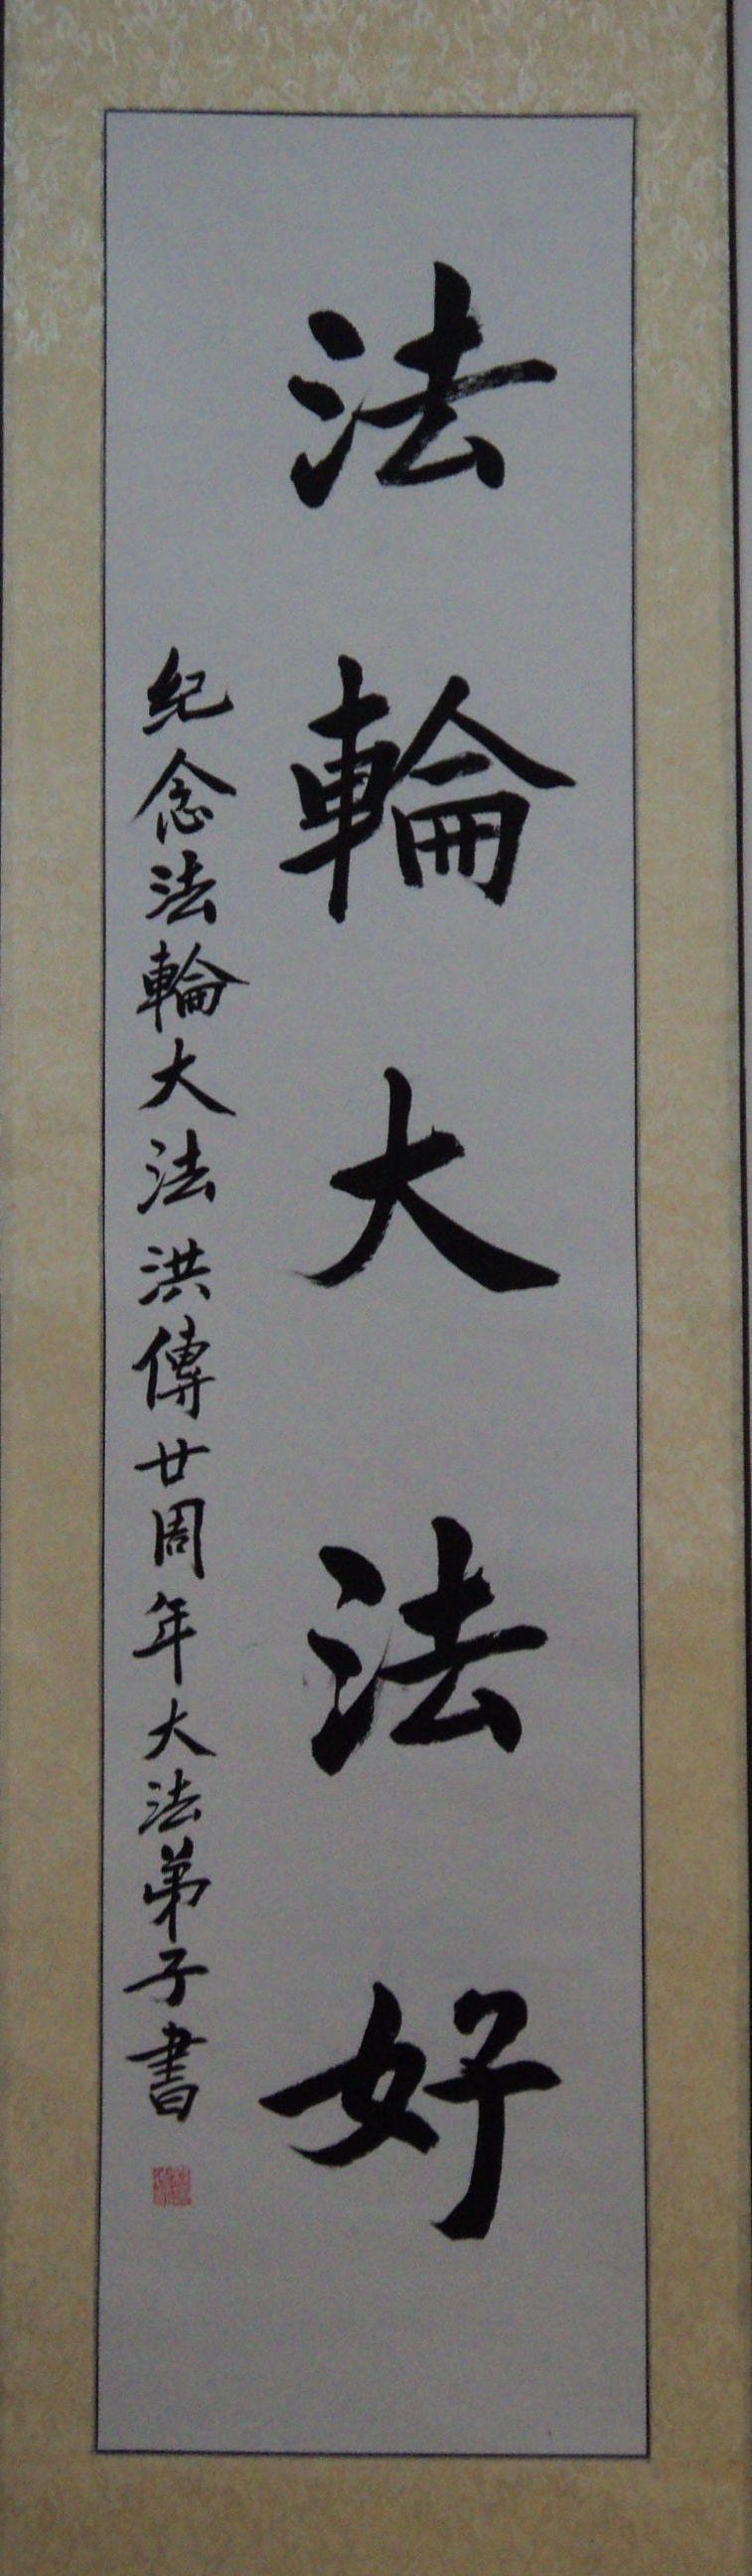 法輪大法好
纪念法輪大法洪傳廿周年大法弟子書